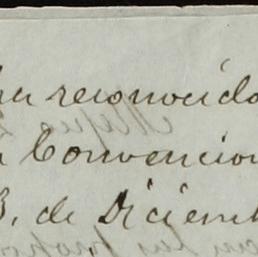 ha reconocido
a Convencion
3, de Diciemb